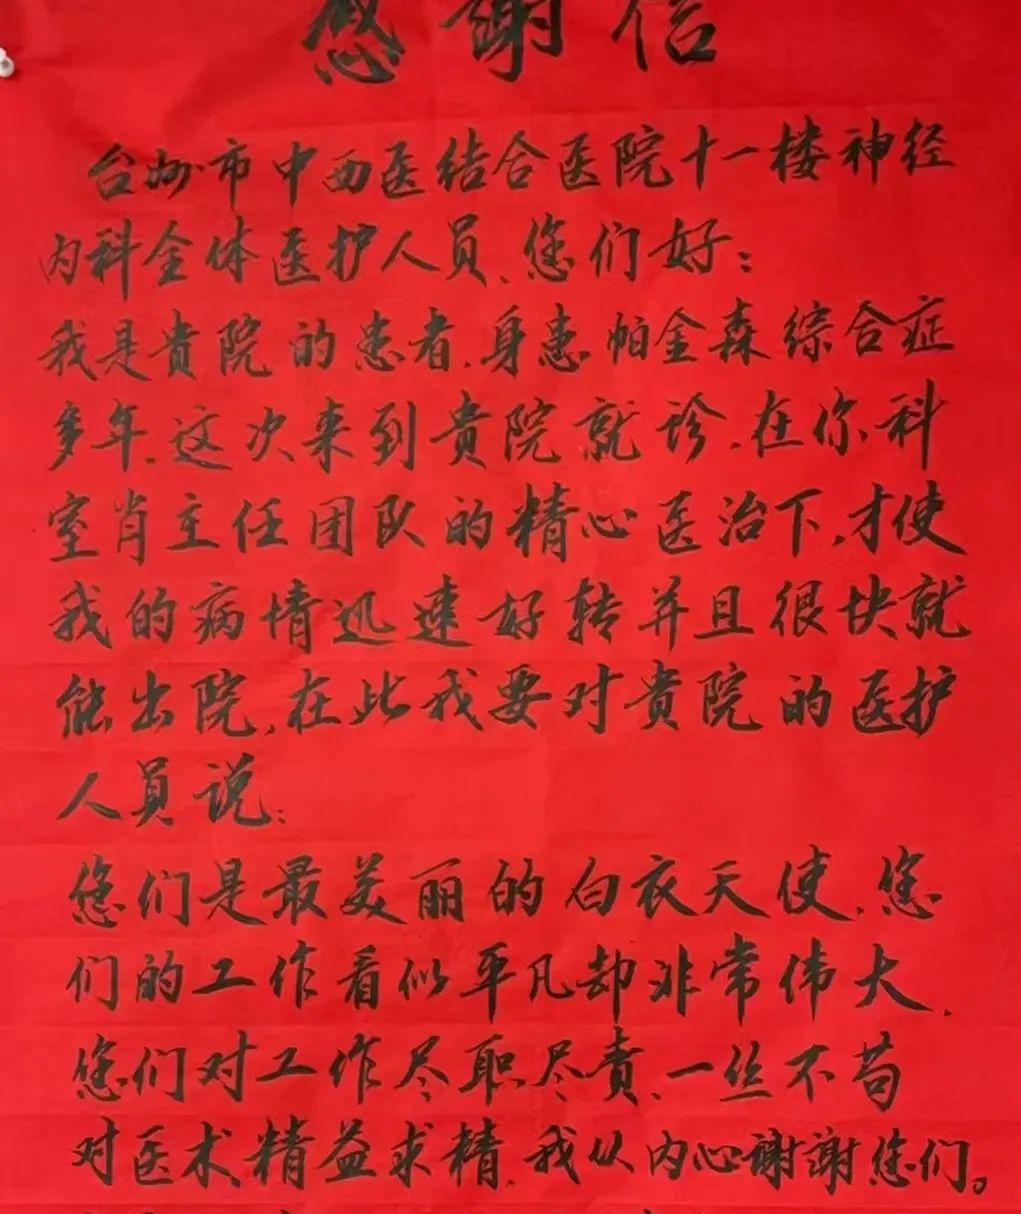 感謝信
台州市中西医结合医院十一楼神经
内科全体医护人员、您们好：
我是贵院的患者、身患帕金森综合症
多年、这次来到贵院就诊、在你科
室肖主任团队的精心医治下，才使
我的病情迅速好转并且很快就
能出院，在此我要对贵院的医护
人员说：
您们是最美丽的白衣天使、您
们的工作看似平凡却非常伟大、
您们对工作尽职尽责、一丝不苟
对医术精益求精、我从内心謝謝您们。